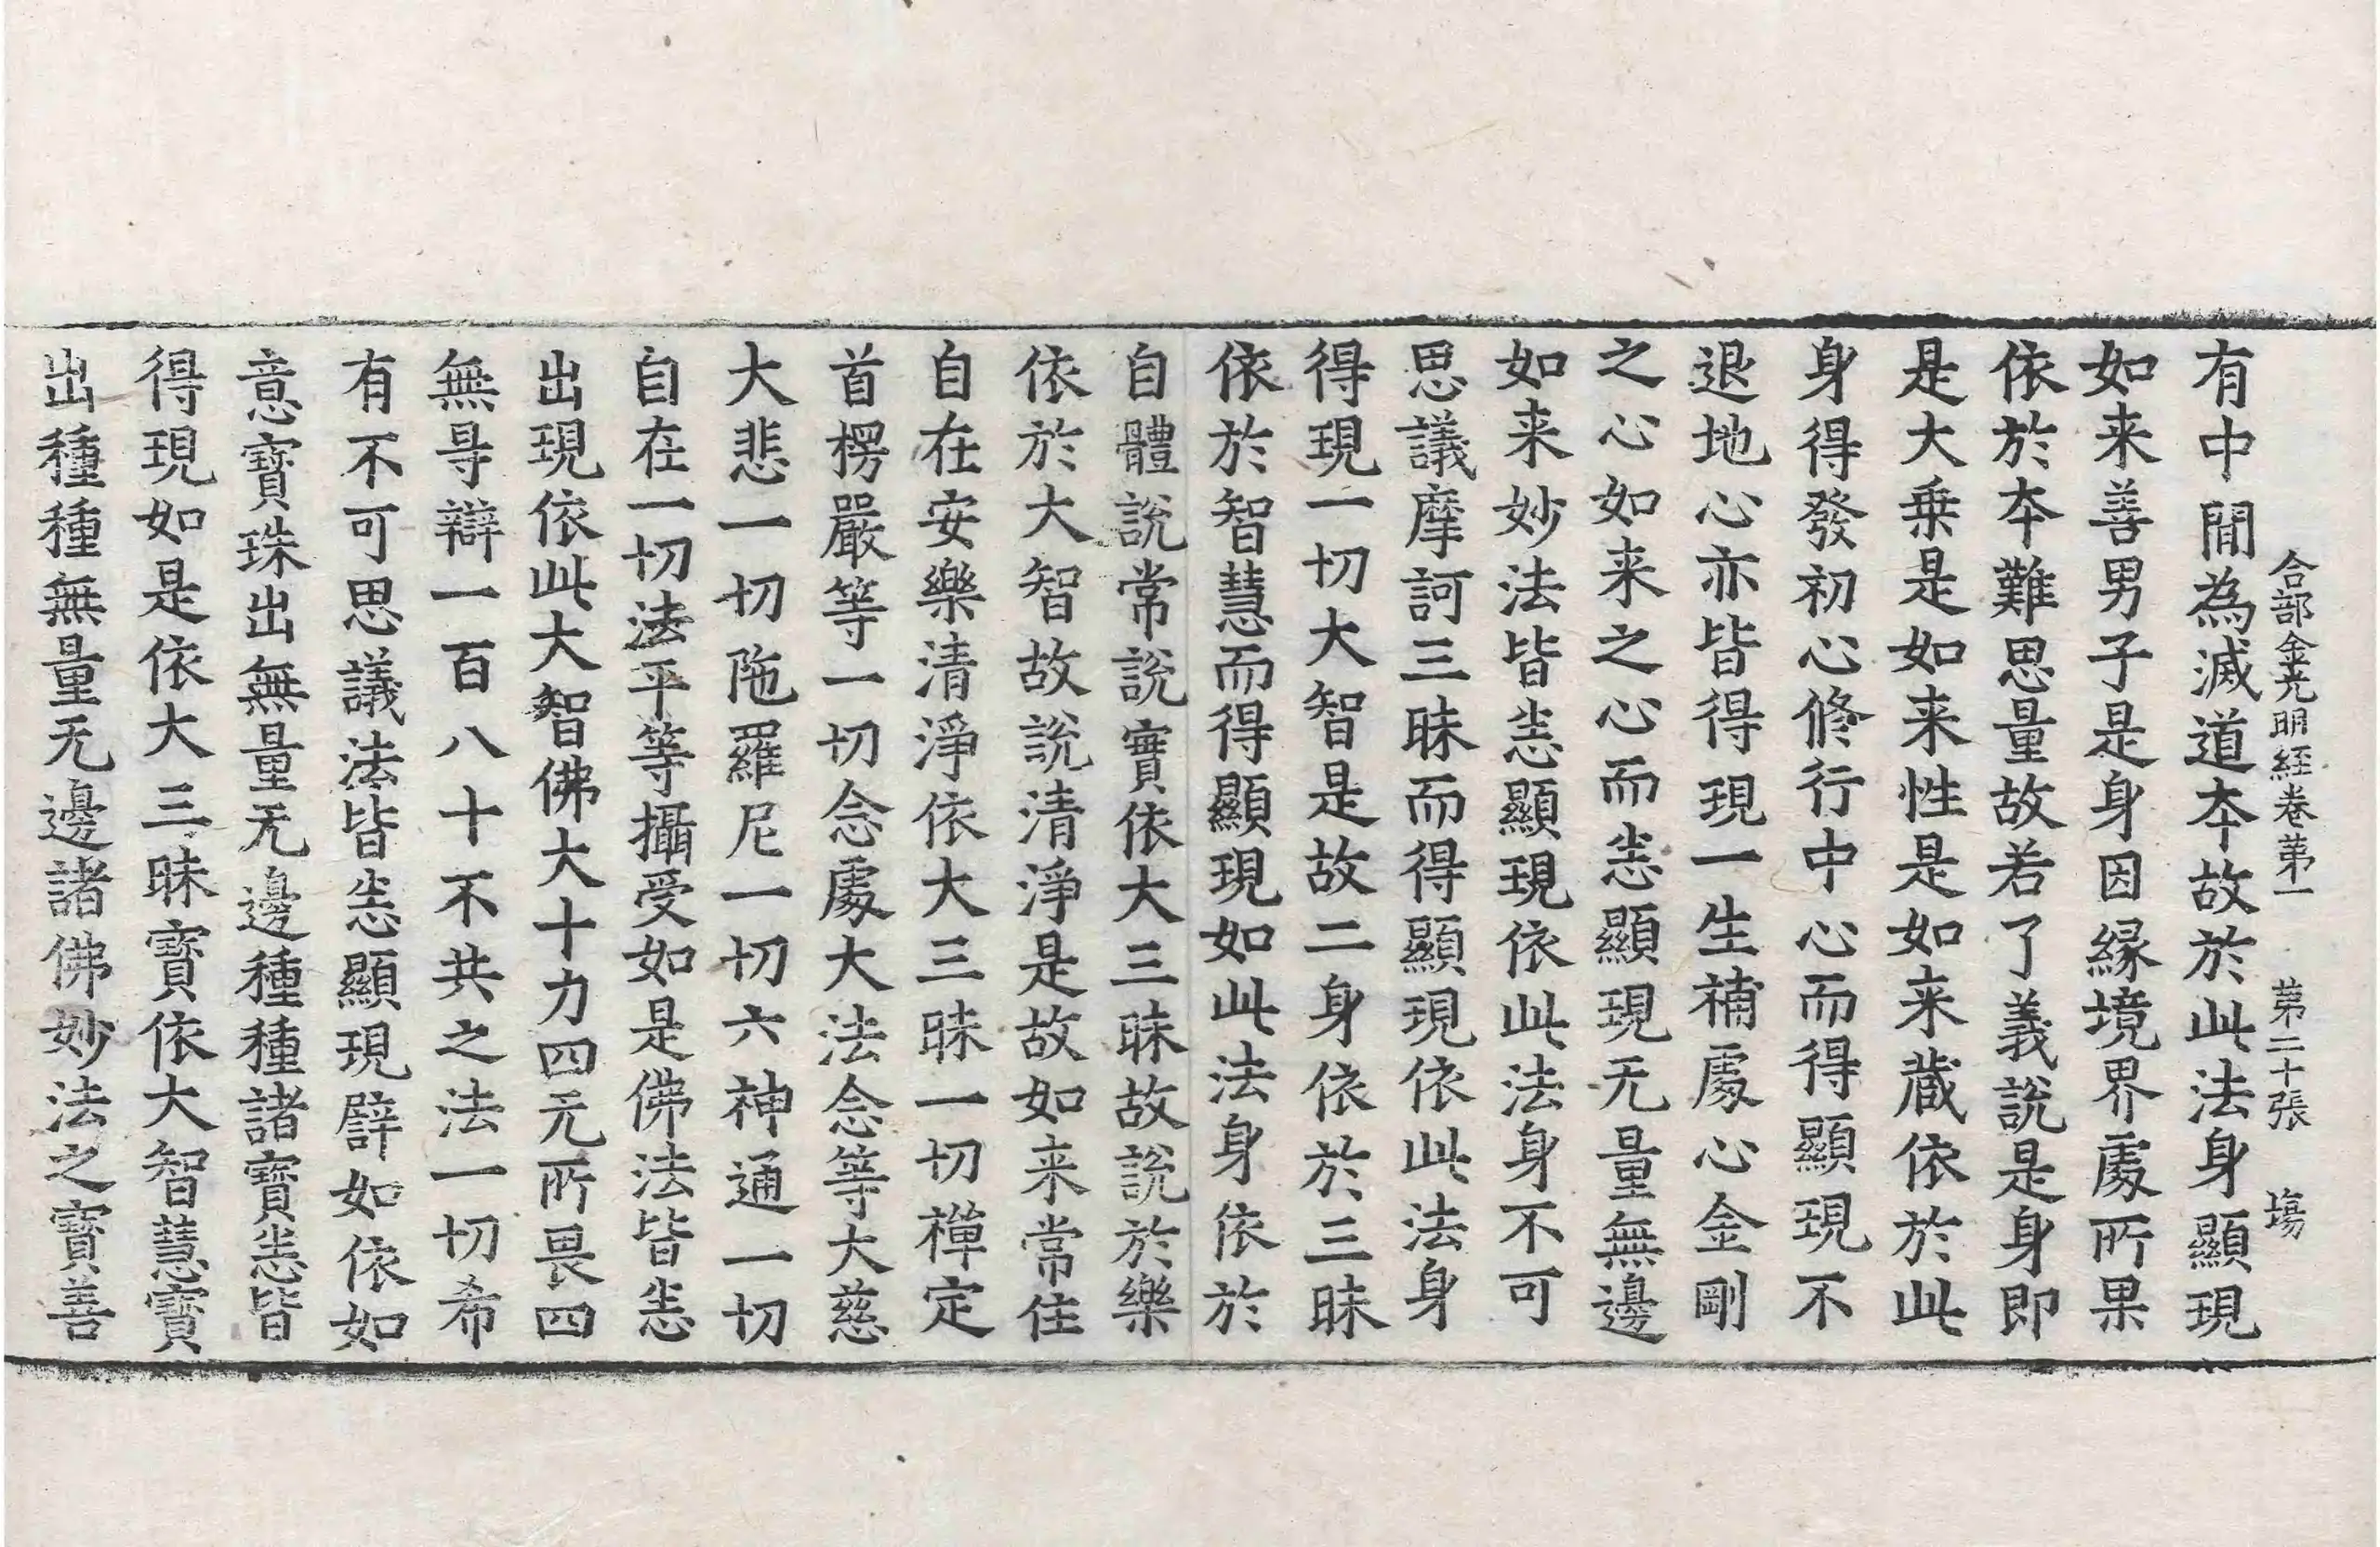 合部金光明経卷苐一　苐二十張　塲
有中間為滅道夲故於此法身顯現
如来善男子是身因緣境界處所果
依於夲難思量故若了義說是身即
是大乗是如来性是如来蔵依於此
身得發初心修行中心而得顯現不
退地心亦皆得現一生補處心金剛
之心如来之心而悉顯現无量無邊
如来妙法皆悉顯現依此法身不可
思議摩訶三昧而得顯現依此法身
得現一切大智是故二身依於三昧
依於智慧而得顯現如此法身依於
自體說常說實依大三昧故說於樂
依於大智故說清淨是故如来常住
自在安樂清淨依大三昧一切禪定
首楞嚴等一切念處大法念等大慈
大悲一切陁羅尼一切六神通一切
自在一切法平等攝受如是佛法皆悉
出現依此大智佛大十力四无所畏四
無㝵辯一百八十不共之法一切希
有不可思議法皆悉顯現譬如依如
意寶珠出無量无邊種種諸寶悉皆
得現如是依大三昧寶依大智慧寶
出種種無量无邊諸佛妙法之寶善